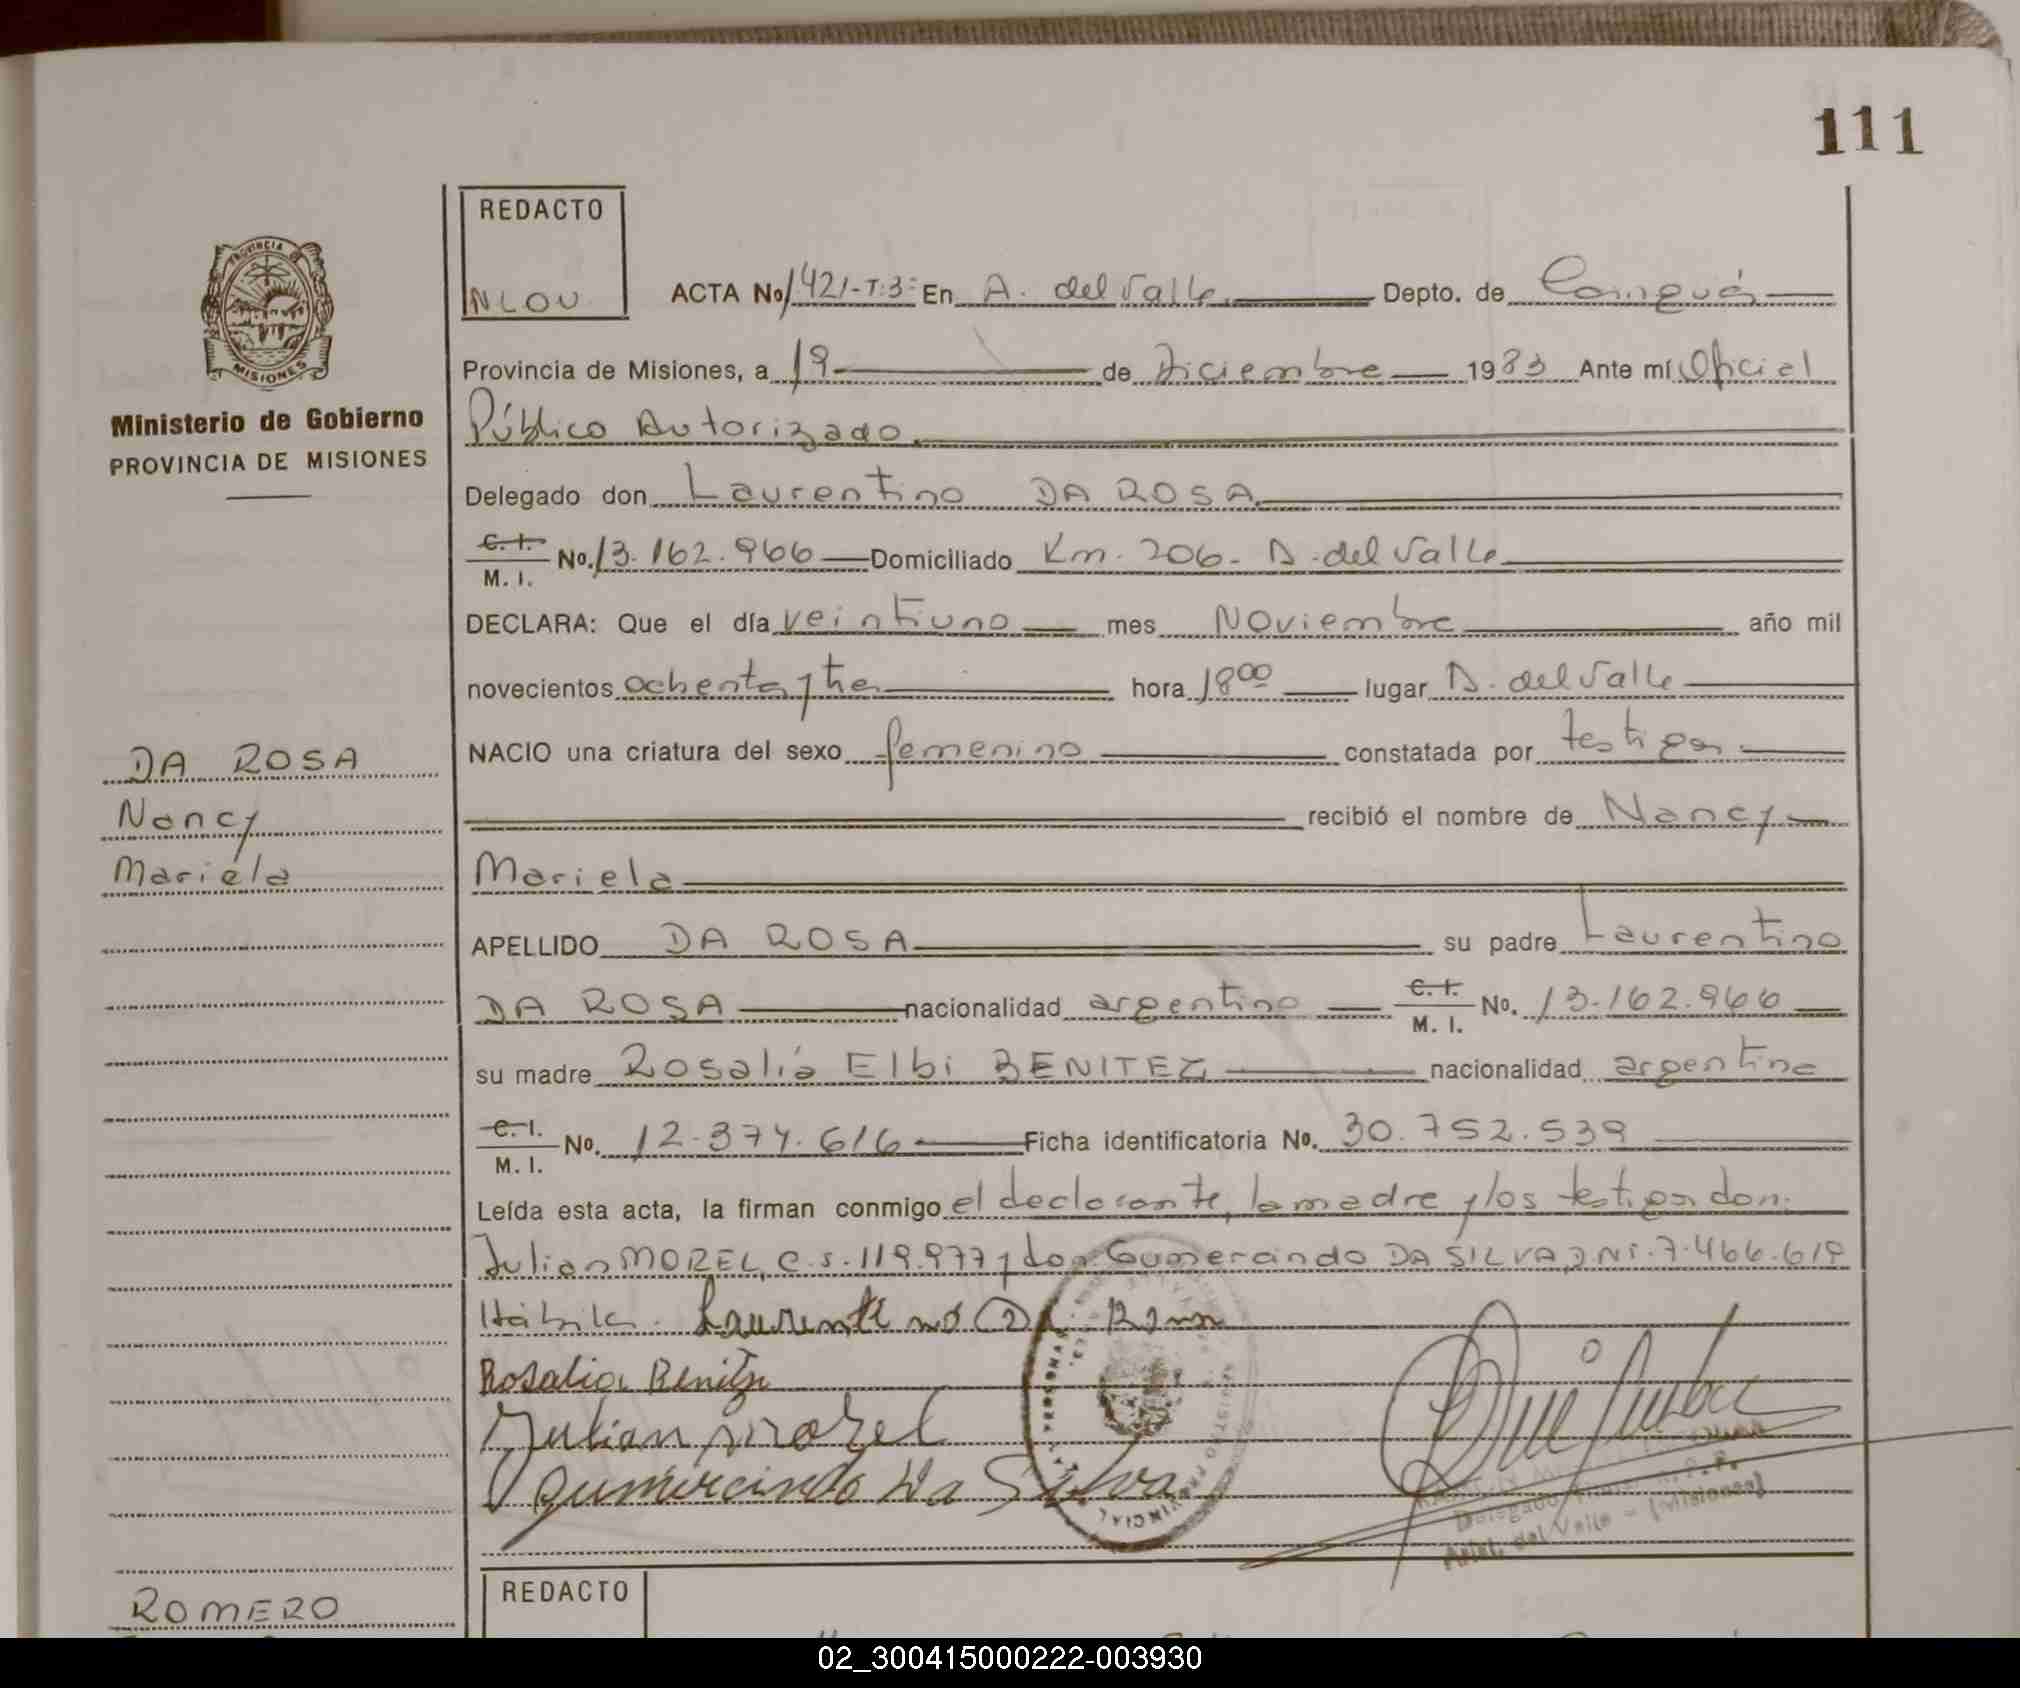 111
PROVINCIA
MISIONES
Ministerio de Gobierno
PROVINCIA DE MISIONES
DA ROSA
Nancy
Mariela
REDACTO
NLOU
ACTA No 1421-T.3: En A. del Valle Depto. de Cainguás
Provincia de Misiones, a 19 de Diciembre 1983 Ante mí Oficial
Público Autorizado
Delegado don Laurentino DA ROSA
C. I. M. I. No. 13.162.966 Domiciliado Km. 206- A. del Valle
DECLARA: Que el día veintiuno mes Noviembre año mil
novecientos ochenta y tres hora 18 00 lugar A. del Valle
NACIO una criatura del sexo femenino constatada por testigos
recibió el nombre de Nancy
Mariela
APELLIDO DA ROSA su padre Laurentino
DA ROSA nacionalidad argentino C. I. M. I. No. 13.162.966
su madre Rosalía Elbi BENITEZ nacionalidad argentina
C. I. M. I. No. 12.374.616 Ficha identificatoria No. 30.752.539
Leída esta acta, la firman conmigo el declarante, la madre y los testigos don:
Julian MOREL, C.S. 119.977 y don Gumercindo DA SILVA, D.NI. 7.466.619
Hábiles. Laurentino Da Rosa
Rosalia Benitez
Julian Morel
Gumercindo Da Silva
REGISTRO PROVINCIAL
Delegado
Arist. del Valle - (Misiones)
ROMERO
REDACTO
02_300415000222-003930